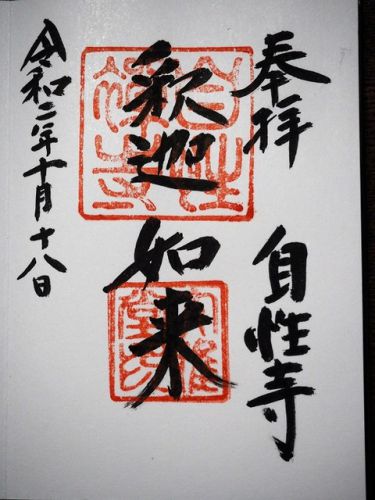 奉拝
自性寺
釈迦如来
令和二年十月十八日